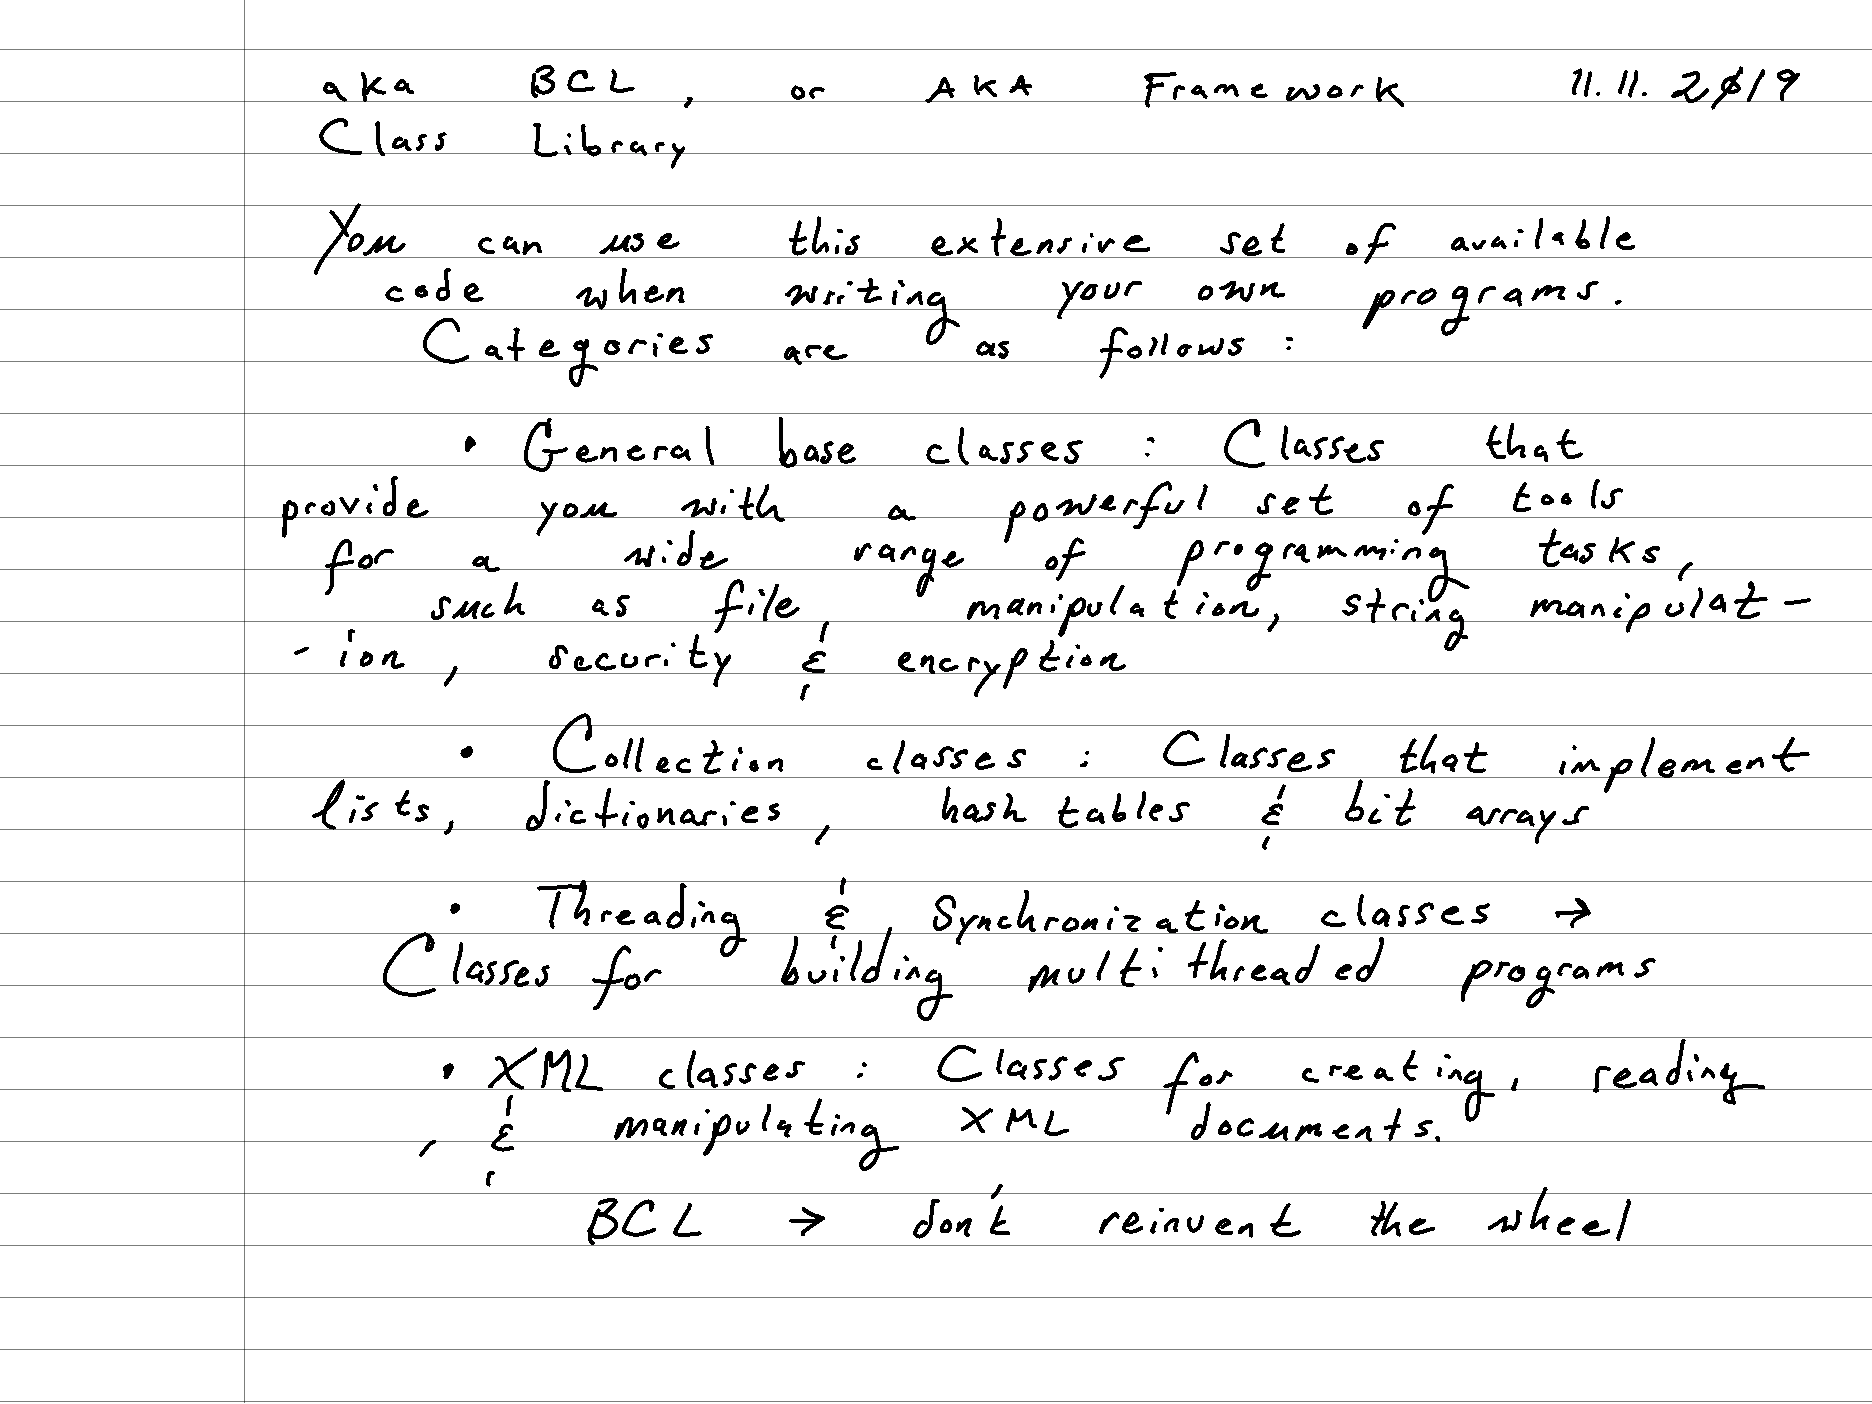 aka BCL, or AKA Framework 11.11.2019
Class Library
You can use this extensive set of available
code when writing your own programs.
Categories are as follows:
• General base classes: Classes that
provide you with a powerful set of tools
for a wide range of programming tasks,
such as file, manipulation, string manipulat-
-ion, security & encryption
• Collection classes: Classes that implement
lists, dictionaries, hash tables & bit arrays
• Threading & Synchronization classes →
Classes for building multithreaded programs
• XML classes: Classes for creating, reading
, & manipulating XML documents.
BCL → don't reinvent the wheel